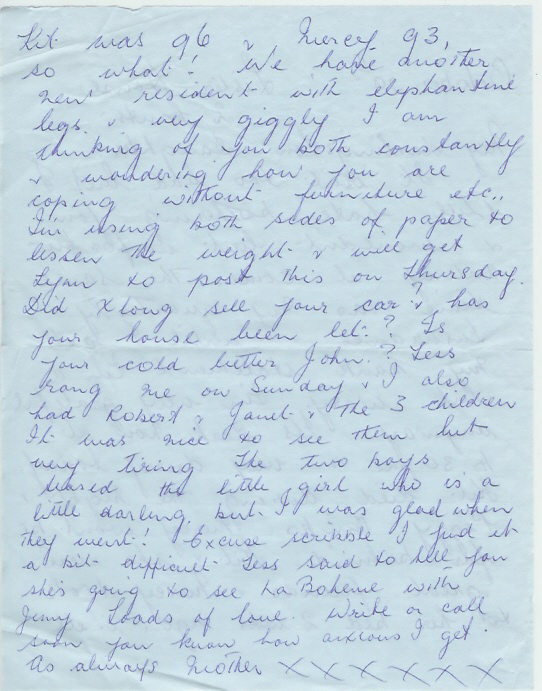 Kit was 96 & Mercy 93,
so what! We have another
new resident with elephantine
legs. & very giggly I am
thinking of you both constantly
& wondering how you are
coping without furniture etc.,
I'm using both sides of paper to
lessen the weight & will get
Lynn to post this on Thursday.
Did Xlong sell your car? & has
your house been let.? Is
your cold better John.? Less
rang me on Sunday & I also
had Robert & Janet & the 3 children
It was nice to see them but
very tiring The two boys
teased the little girl who is a
little darling, but I was glad when
they went! Excuse scribble I find it
a bit difficult Less said to tell you
she's going to see La Boheme with
Jimy Loads of love. Write or call
soon you know how anxious I get.
As always Mother X X X X X X X